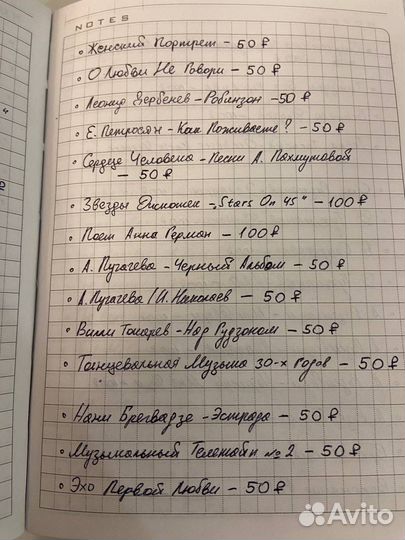 NOTES
• Женский Портрет - 50 ₽
• О Любви Не Говори - 50 ₽
• Леонид Дербенев - Робинзон - 50 ₽
• Е. Петросян - Как Поживаете? - 50 ₽
• Сердце Человека - Песни А. Пахмутовой
- 50 ₽
• Звезды Дискотек - „Stars On 45" - 100 ₽
• Поет Анна Герман - 100 ₽
• А. Пугачева - Черный Альбом - 50 ₽
• А. Пугачева / И. Николаев - 50 ₽
• Вилли Токарев - Над Гудзоном - 50 ₽
• Танцевальная Музыка 30-х Годов - 50 ₽
• Нани Брегвадзе - Эстрада - 50 ₽
• Музыкальный Телетайп № 2 - 50 ₽
• Эхо Первой Любви - 50 ₽
Avito